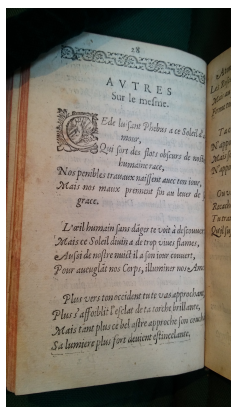 28
AVTRES
Sur le mesme.
CEde luisant Phebus a ce Soleil d'a
mour,
Qui sort des flots obscurs de nostre
humaine race,
Nos penibles trauaux naissent auec ton iour,
Mais nos maux prennent fin au leuer de
grace.
L'œil humain sans dãger te voit à descouuert
Mais ce Soleil diuin a de trop viues flames,
Ausi de nostre nuict il a son iour couuert,
Pour aueuglãt nos Corps, illuminer nos Ames
Plus vers ton occident tu te vas approchant,
Plus s'affoiblit l'esclat de ta torche brillante,
Mais tant plus ce bel astre approche son couch
Sa lumiere plus fort deuient estincelante.